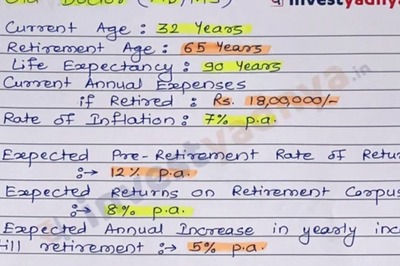 Old Doctor (MD/MS) investyadnya
Current Age : 32 Years
Retirement Age : 65 Years
Life Expectancy : 90 Years
Current Annual Expenses
if Retired : Rs. 18,00,000/-
Rate of Inflation : 7% p.a.
Expected Pre-Retirement Rate of Retu
:→ 12% p.a.
Expected Returns on Retirement Corpus
:→ 8% p.a.
Expected Annual Increase in yearly inc
till retirement :→ 5% p.a.